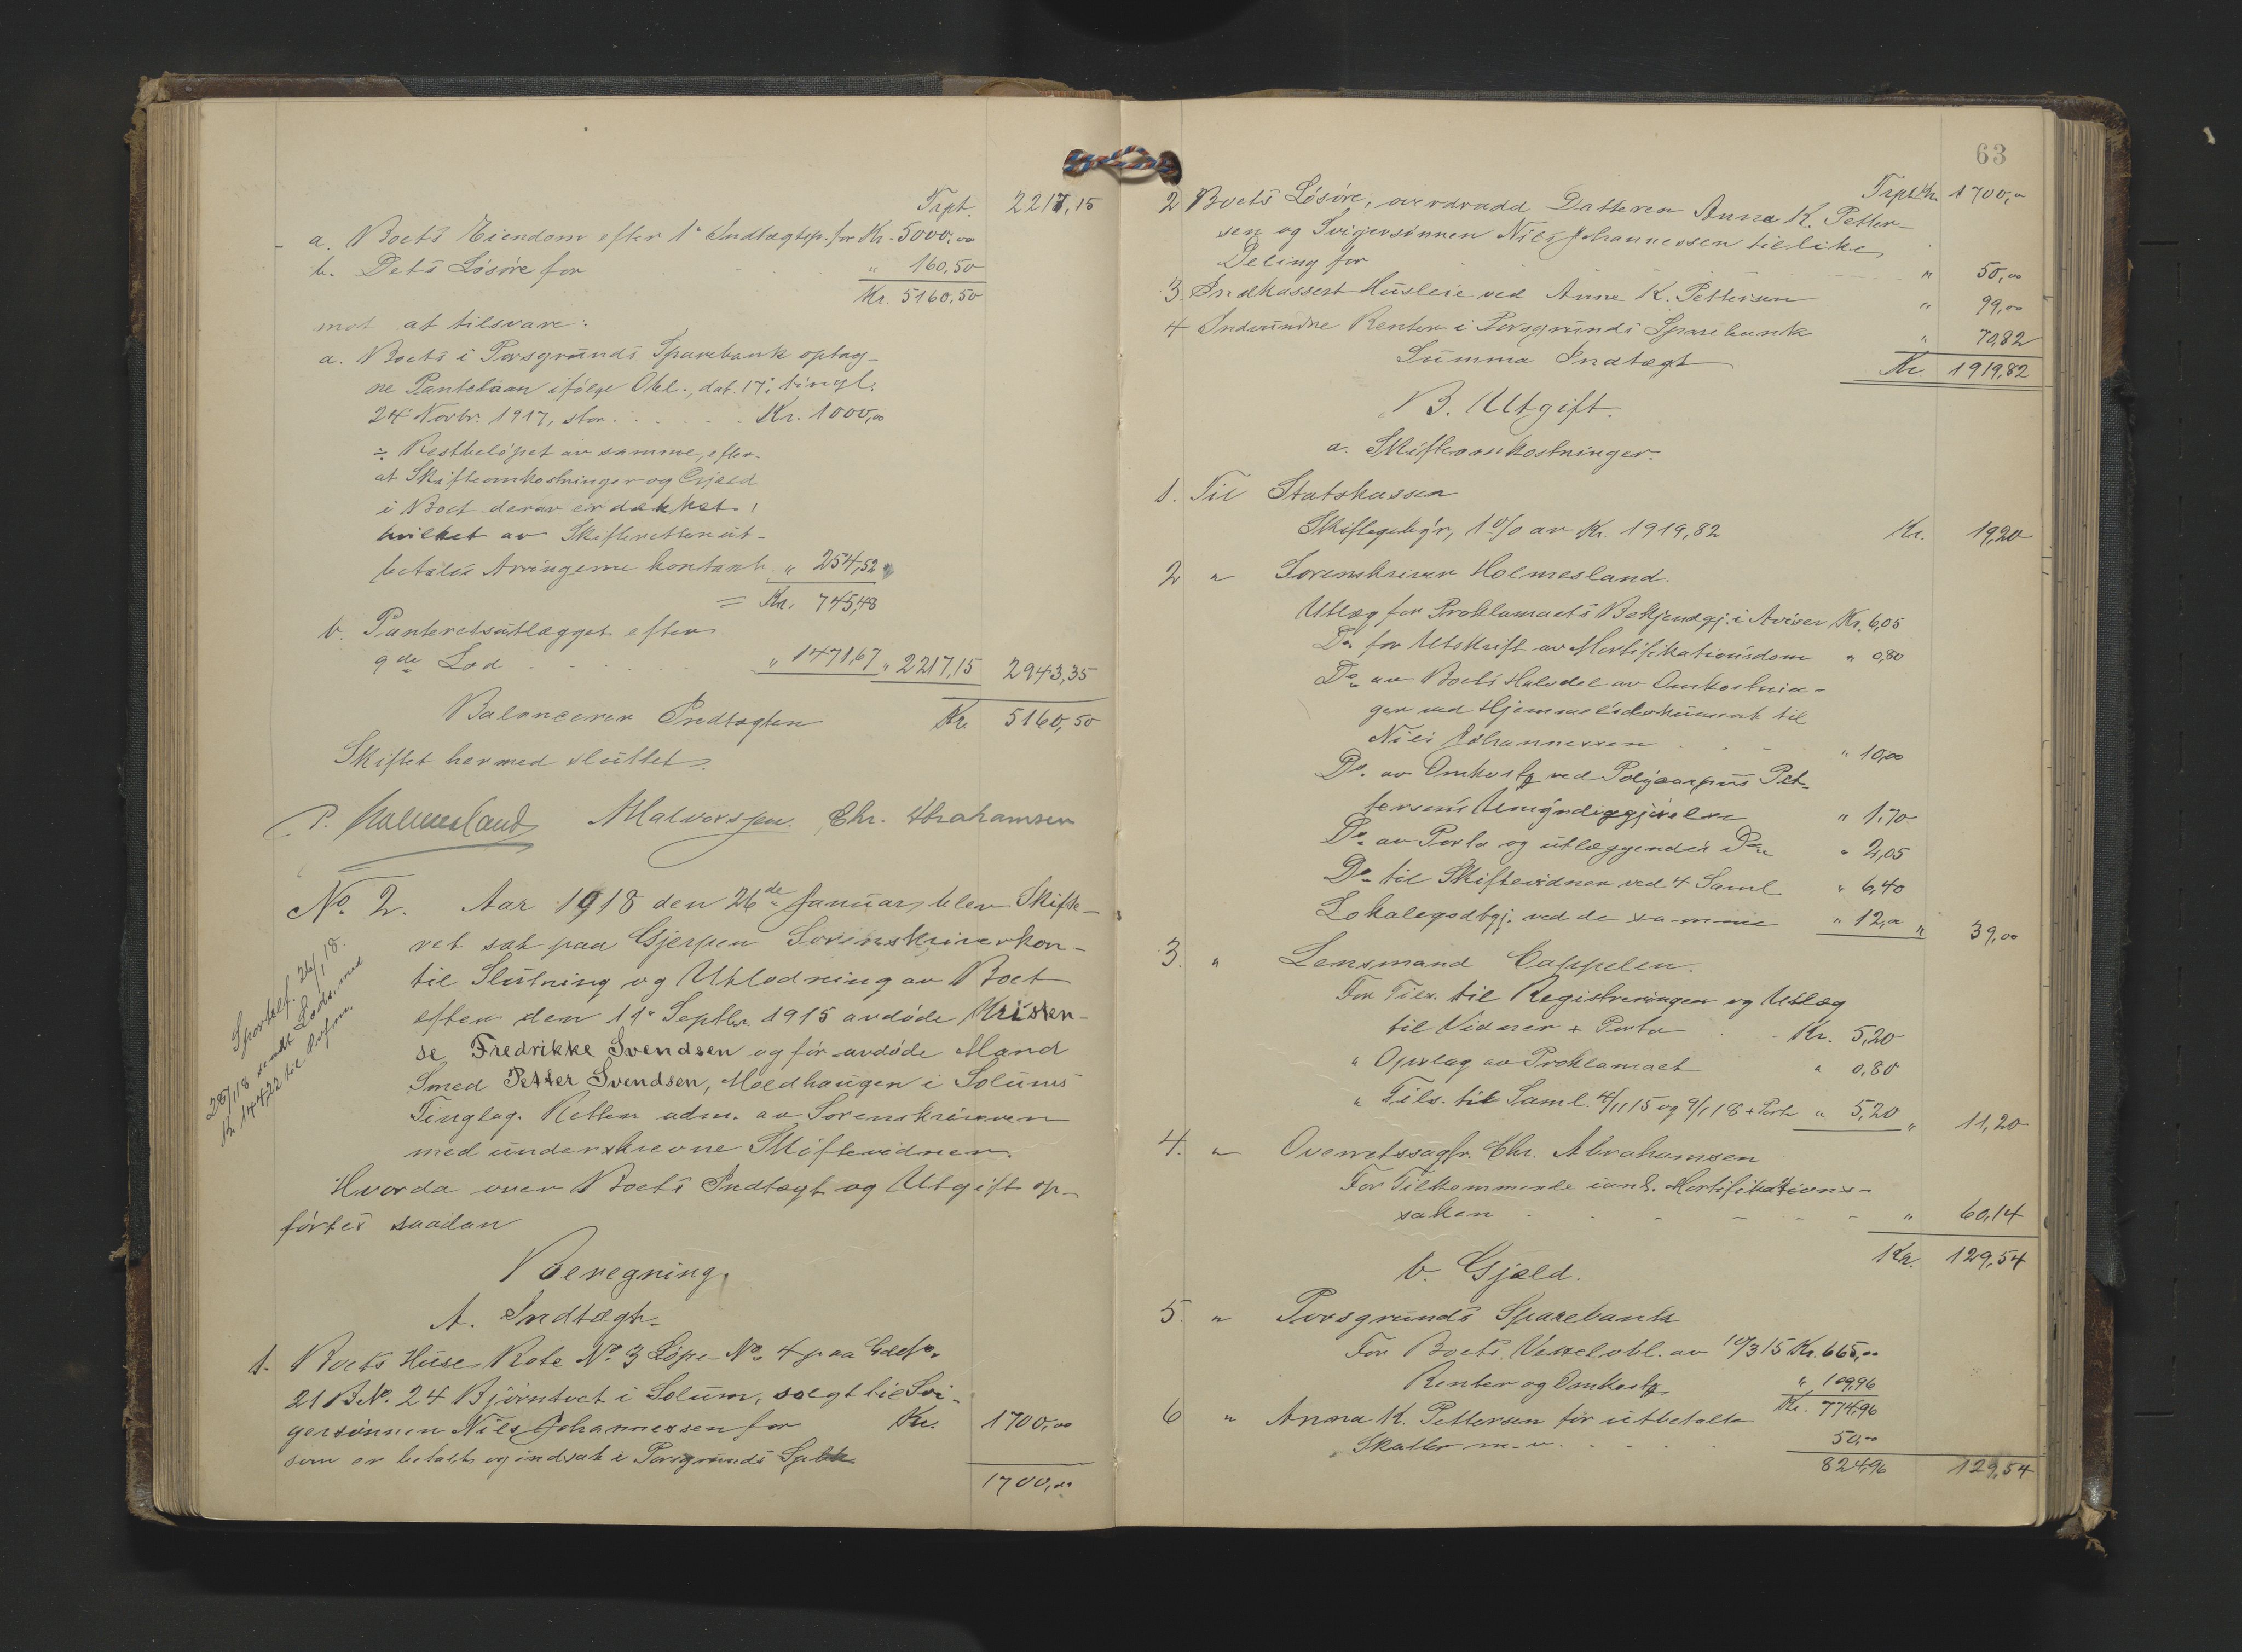 Trpt. 2217,15
a. Boets Eiendom efter 1ste Indtægtsp. for Kr. 5000,00
b. Dets Løsøre for " 160,50
Kr. 5160,50
mot at tilsvare:
a. Boets i Porsgrunds Sparebank optag-
ne Pantelaan ifølge Obl., dat. 17, tingl.
24 Novbr. 1917, stor Kr. 1000,00
÷ Restbeløpet av samme, efter-
at Skifteomkostninger og Gjæld
i Boet derav er dækket,
hvilket av Skifteretten ut-
betales Arvingerne kontant " 254,52
= Kr. 745,48
b. Panteretsutlægget efter
9de Lod " 1471,67 " 2217,15 2943,35
Balancerer Indtægten Kr. 5160,50
Skiftet hermed sluttet.
P. Holmesland AHalvorsen. Chr. Abrahamsen
No. 2. Aar 1918 den 26de Januar, blev Skifte-
ret sat paa Gjerpen Sorenskriverkon-
til Slutning og Utlodning av Boet
efter den 11te Septbr. 1915 avdøde Kristen-
se Fredrikke Svendsen og før avdøde Mand
Smed Petter Svendsen, Moldhaugen i Solums
Tinglag. Retten adm. av Sorenskriveren
med underskrevne Skiftevidner.
Sportelf. 26/1 18.
28/1 18 sendt Lods. med
Kr. 1442,22 til
Hvorda over Boets Indtægt og Utgift op-
førtes saadan
Beregning.
A. Indtægt.
1. Boets Huse Rote No. 3 Løpe-No. 4 paa GdsNo.
21 B.No. 24 Bjørntvet i Solum, solgt til Svi-
gersønnen Nils Johannessen for Kr. 1700,00
som er betalt og indsat i Porsgrunds Spbk.
1700,00
63
Trpt. Kr. 1700,00
2 Boets Løsøre, overdradd Datteren Anna K. Petter-
sen og Svigersønnen Nils Johannessen til like
Deling for " 50,00
3. Indkassert Husleie ved Anne K. Pettersen " 99,00
4 Indvundne Renter i Porsgrunds Sparebank " 70,82
Summa Indtægt Kr. 1919,82
B. Utgift.
a. Skifteomkostninger.
1. Til Statskassen
Skiftegebyr, 1% av Kr. 1919,82 Kr. 19,20
2 " Sorenskriver Holmesland.
Utlæg for Proklamaets Bekjendtgj. i Aviser Kr. 6,05
Do. for Utskrift av Mortifikationsdom " 0,80
Do. av Boets Halvdel av Omkostnin-
ger ved Hjemmelsdokument til
Nils Johannessen " 10,00
Do. av Omkostg. ved Polycarpus Pet-
tersens Umyndiggjørelse " 1,70
Do. av Porto og utlæggendes Do. " 2,05
Do. til Skiftevidner ved 4 Saml. " 6,40
Lokalegodtgj. ved de samme " 12,00 " 39,00
3. " Lensmand Cappelen.
For Tils. til Registreringen og Utlæg
til Vidner + Porto Kr. 5,20
" Opslag av Proklamaet " 0,80
" Tils. til Saml. 4/11 15 og 9/1 18 + Porto " 5,20 " 11,20
4. " Overretssagfr. Chr. Abrahamsen
For Tilkommende i anl. Mortifikations-
saken " 60,14
Kr. 129,54
b. Gjæld.
5. " Porsgrunds Sparebank
For Boets Vexelobl. av 10/3 15 Kr. 665,00
Renter og Omkostg. " 109,96
Kr. 774,96
6 " Anna K. Pettersen for utbetalte
Skatter m.v. 50,00
824,96 129,54